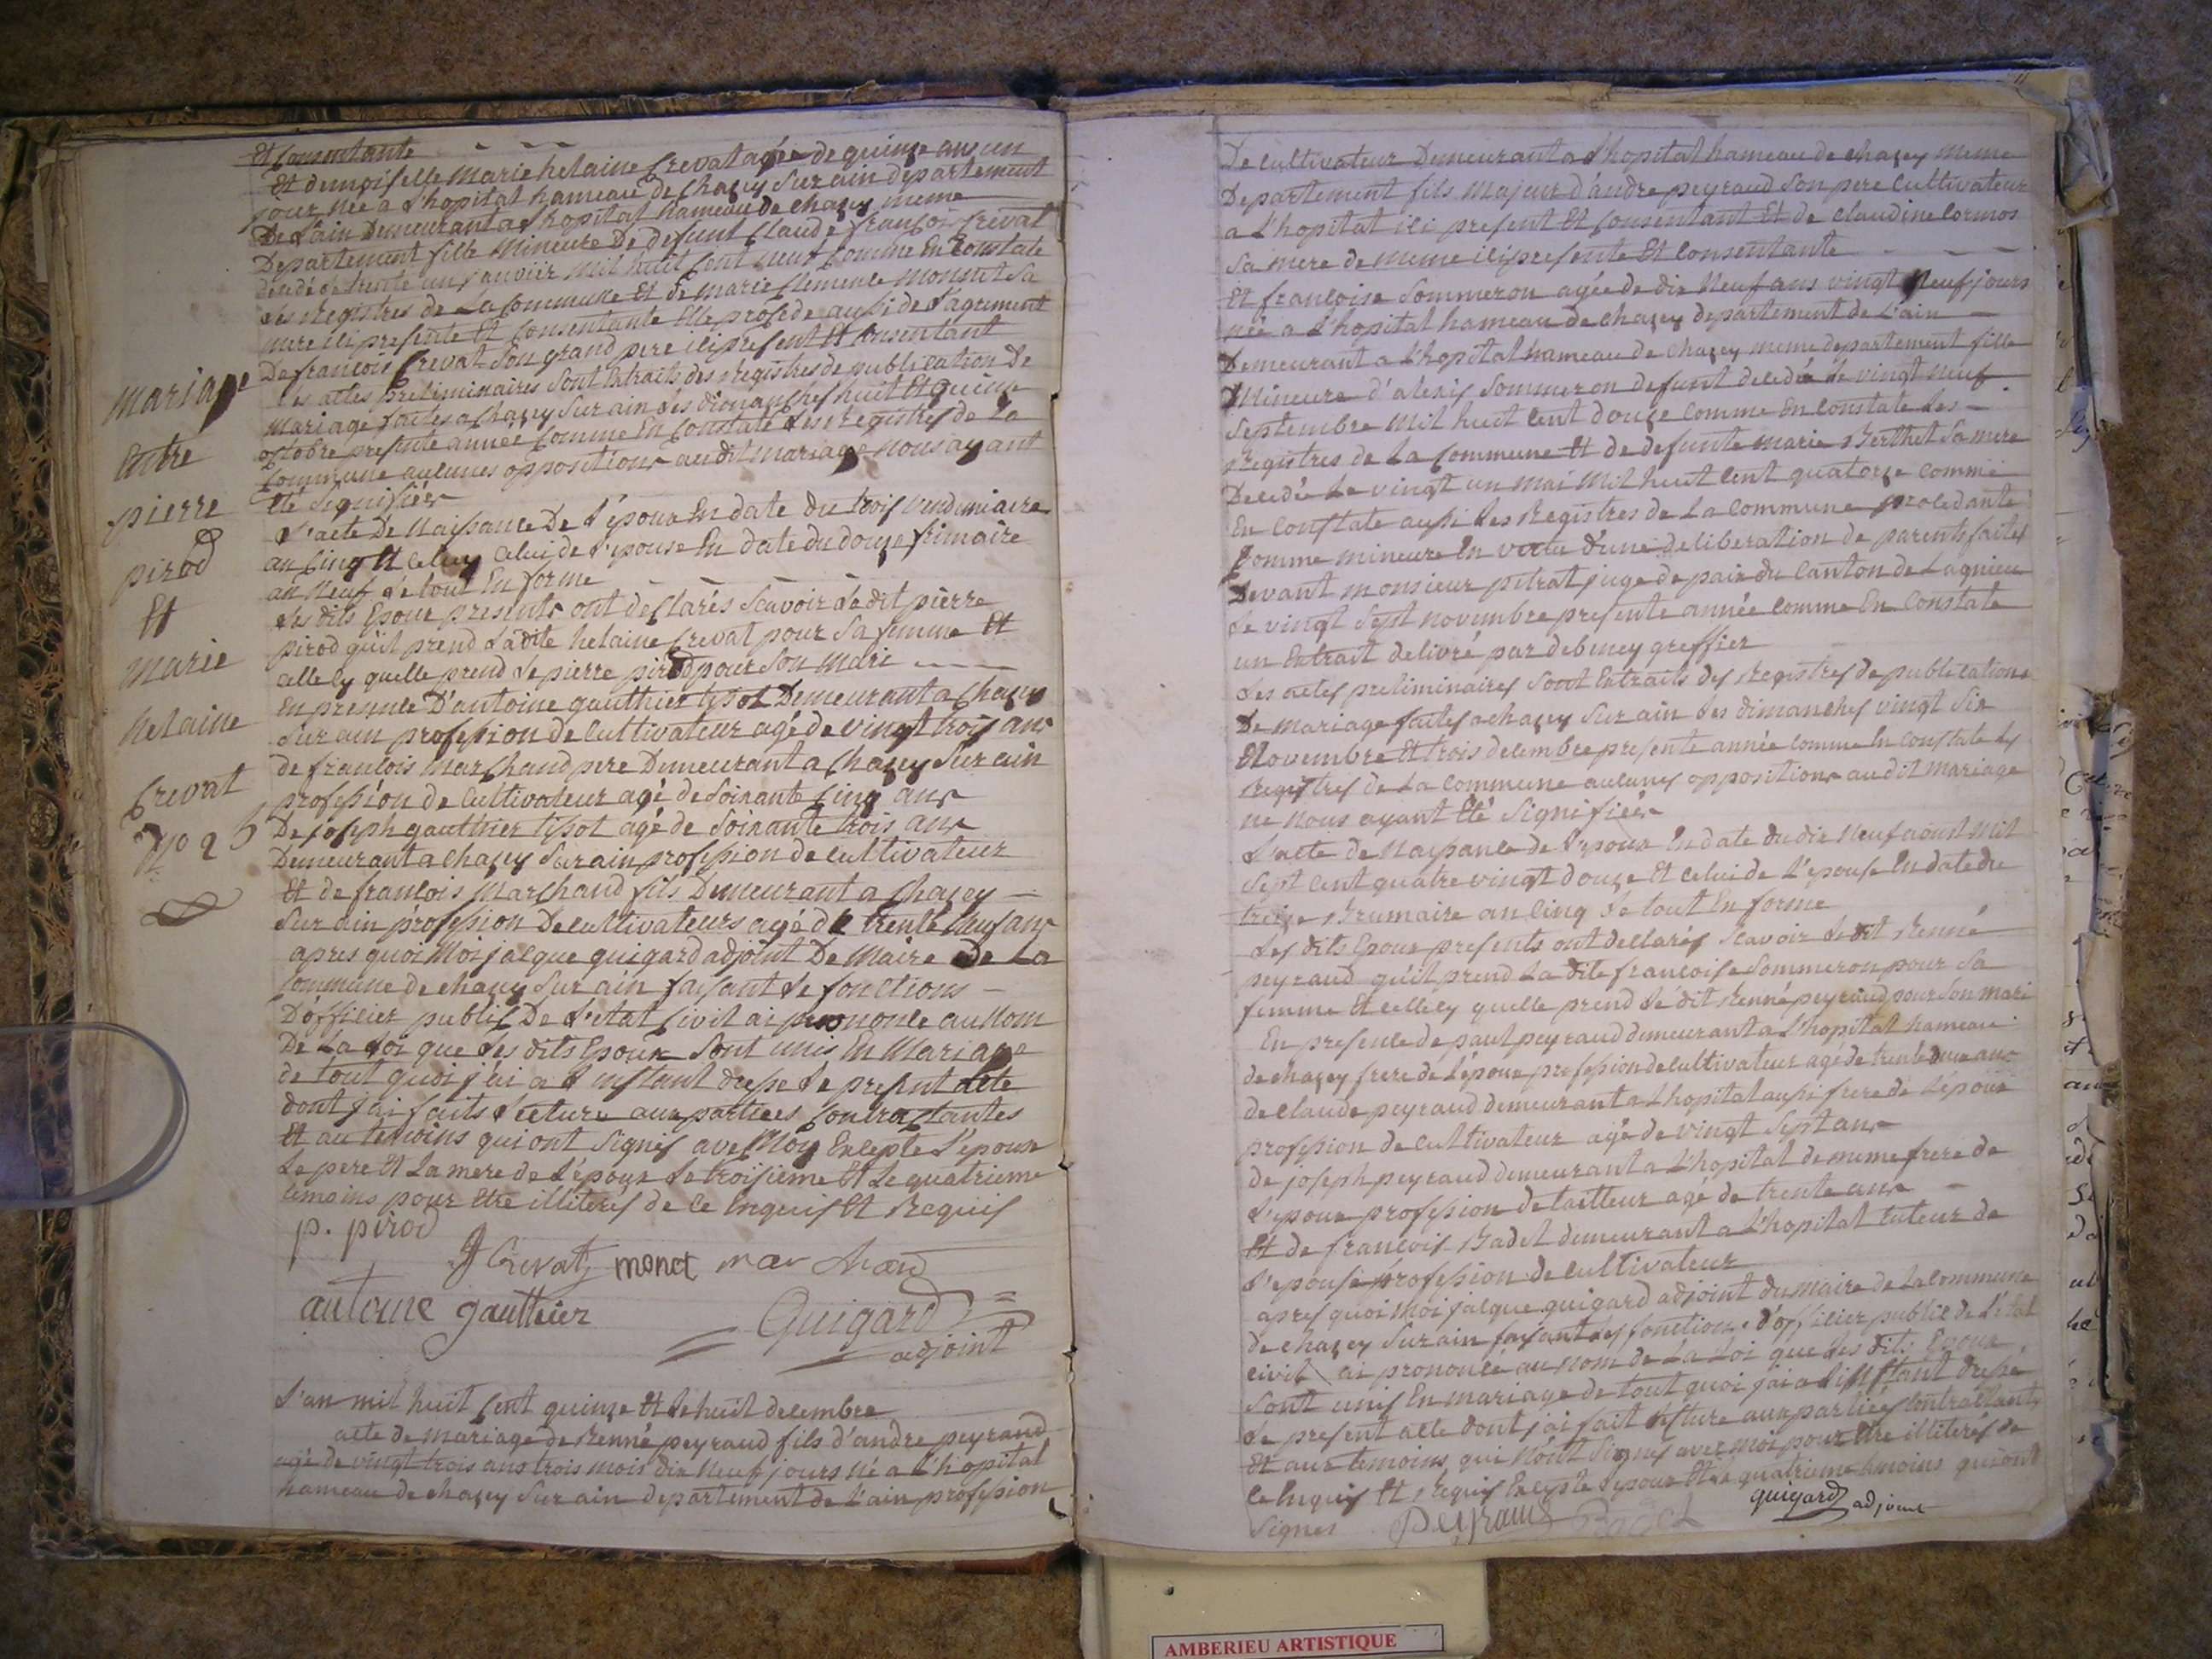 Et Consentante - - -
Et demoiselle Marie helaine Crevat agée de quinze ans un
jour née a l'hopital hameau de chazey sur ain departement
De l'ain Demeurant a l'hopital hameau de chazey meme
Departement fille mineure De defunt Claude françois Crevat
décédé le trente un janvier mil huit cent neuf Comme En Constate
les Registres de La Commune Et de marie Clemence monnet Sa
mere ici presente Et Consentante Elle procede aussi de l'agrement
De francois Crevat Son grand pere ici present Et Consentant
Les actes Preliminaires Sont Extraits des registres de publication De
Mariage faites a chazey Sur ain les dimanches huit Et quinze
octobre presente année Comme En Constate Les Registres de La
Commune aucunes oppositions audit mariage Nous ayant
Eté Signifiées
L'acte De Naissance De L'époux En date du trois vendemiaire
an Cinq Et celuy celui de L'epouse En date du douze frimaire
an Neuf Le tout En forme
Les dits Epoux presents ont declarés Scavoir le dit pierre
pirod qu'il prend La dite helaine Crevat pour Sa femme Et
celle cy quelle prend Le pierre pirod pour Son mari
En presence D'antoine gauthier tisot Demeurant a chazey
Sur ain profession de Cultivateur agé de vingt trois ans
de francois Marchand pere Demeurant a chazey Sur ain
profession de Cultivateur agé de soixante Cinq ans
De joseph gauthier tisot agé de soixante trois ans
Demeurant a chazey Sur ain profession de cultivateur
Et de francois Marchand fils Demeurant a chazey
Sur ain profession De cultivateurs agé de trente Neuf ans
apres quoi Moi jacque quigard adjoint De Maire De La
Commune de chazey Sur ain faisant Le fonctions
D'officier public De L'etat Civil ai prononcé au Nom
De La Loi que Les dits Epoux Sont unis En Mariage
de tout quoi j'ai a L'instant dressé Le present acte
dont j'ai faits Lecture aux parties Contractantes
Et au temoins qui ont signés avec Moy Excepté L'epouse
Le pere Et La mere de L'époux Le troisieme Et Le quatrieme
temoins pour Etre illiterés de ce Enquis Et Requis
p. pirod
Crevat monet marchand
antoine gauthier
Quigard
adjoint
Mariage
Entre
pierre
pirod
Et
Marie
helaine
Crevat
L'an mil huit Cent quinze Et Le huit decembre
acte de Mariage de Renné peyraud fils d'andre peyraud
agé de vingt trois ans trois mois dix Neuf jours né a L'hopital
hameau de chazey Sur ain departement de L'ain profession
De cultivateur Demeurant a L'hopital hameau de chazey meme
Departement fils majeur d'andre peyraud Son pere Cultivateur
a L'hopital ici present Et Consentant Et de Claudine Cormos
Sa mere de meme ici presente Et Consentante
Et francoise Sommeron agée de dix Neuf ans vingt Neuf jours
née a L'hopital hameau de chazey departement de L'ain
Demeurant a L'hopital hameau de chazey meme departement fille
Mineure d'alexis Sommeron defunt decedé Le vingt Neuf
Septembre Mil huit Cent douze Comme En Constate Les
Registres de La Commune Et de defunte Marie Berthet Sa mere
Decedée Le vingt un Mai Mil huit Cent quatorze Comme
En Constate aussi Les Registres de La Commune procedante
Comme mineure En vertu d'une deliberation de parents faites
Devant monsieur pitrat juge de paix du Canton de Lagnieu
Le vingt Sept Novembre presente année Comme En Constate
un Extrait delivré par debeney greffier
Les actes preliminaires Sont Extraits des Registres de publications
De Mariage faites a chazey Sur ain Les dimanches vingt Six
Novembre Et trois decembre presente année Comme En Constate Les
registres de La Commune aucunes oppositions au dit mariage
ne nous ayant Eté Signifiées
L'acte de Naissance de L'epoux En date du dix Neuf aoust Mil
Sept Cent quatre vingt douze Et celui de L'épouse En date du
treize Brumaire an Cinq Le tout En forme
Les dits Epoux presents ont declarés Scavoir Le dit Renné
peyraud qu'il prend La dite francoise Sommeron pour Sa
femme Et celle cy quelle prend Le dit Renné peyraud pour Son mari
En presence de paul peyraud demeurant a L'hopital hameau
de chazey frere de L'époux profession de cultivateur agé de trente deux ans
de Claude peyraud demeurant a L'hopital aussi frere de L'époux
profession de cultivateur agé de vingt Sept ans
De joseph peyraud demeurant a L'hopital de meme frere de
L'époux profession de tailleur agé de trente ans
Et de francois Badet demeurant a L'hopital tuteur de
L'epouse profession de cultivateur
apres quoi Moi jacque quigard adjoint du maire de La commune
de chazey Sur ain faisant Les fonctions d'officier public de L'état
civil ai prononcé au Nom de La Loi que Les dits Epoux
Sont unis En mariage de tout quoi j'ai a L'instant dressé
Le present acte dont j'ai fait Lecture aux parties Contractants
Et aux temoins qui N'ont Signés avec moi pour Etre illiterés de
Ce Enquis Et Requis Excepté L'epoux Et Le quatrieme temoins qui ont
Signés Peyraud Badet quigard adjoint
AMBERIEU ARTISTIQUE